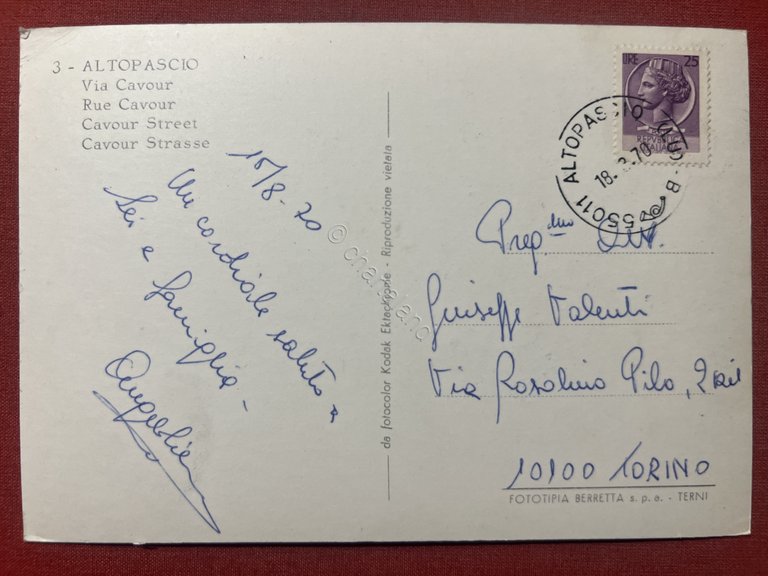 3 - ALTOPASCIO
Via Cavour
Rue Cavour
Cavour Street
Cavour Strasse
15/8-70
Un cordiale saluto a
Lei e famiglia -
da fotocolor Kodak Ektachrome - Riproduzione vietata
LIRE 25
REPUBBLICA
ITALIANA
55011 ALTOPASCIO (LUCCA) - B
18. 8.70
Preg.mo
Giuseppe Valenti
Via Rosolino Pilo, 2
10100 TORINO
FOTOTIPIA BERRETTA s.p.a. - TERNI